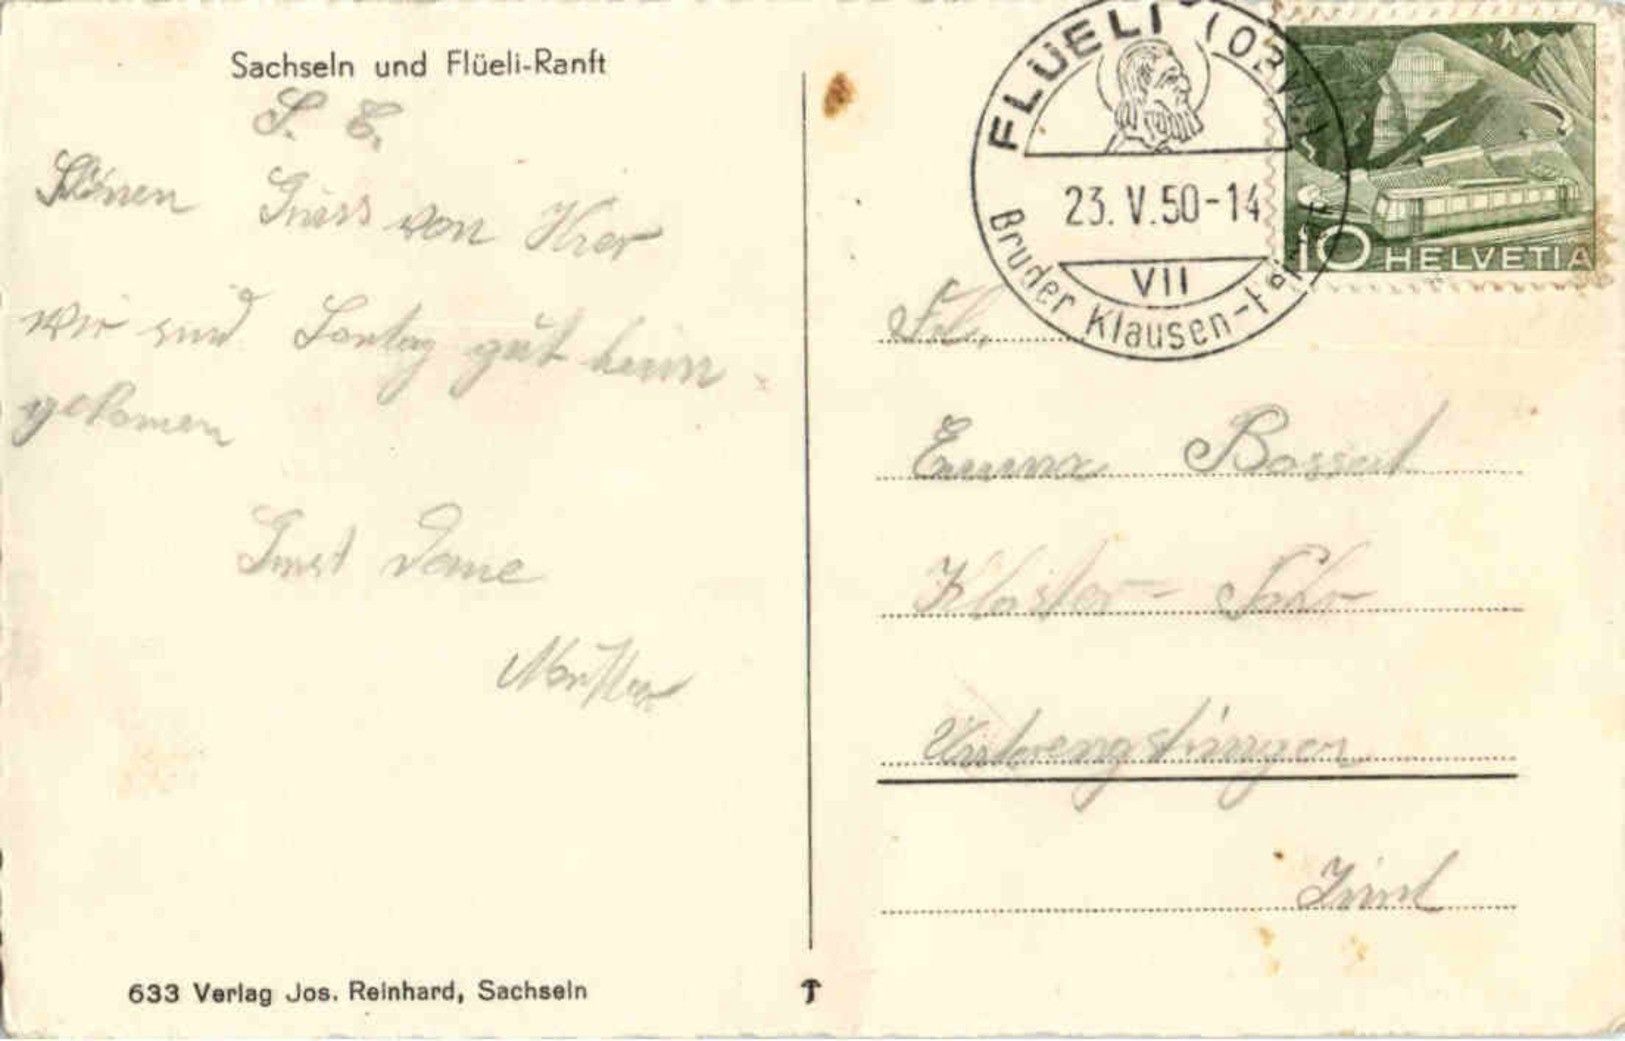 Sachseln und Flüeli-Ranft
S. E.
Schönen Gruss von Hier
wir sind Sontag gut heim
gekomen
Mutter
633 Verlag Jos. Reinhard, Sachseln
FLÜELI (OBW)
23.V.50-14
VII
Bruder Klausen-
10 HELVETIA
Frl.
Emma Bossert
Kloster-Fahr
Unterengstringen